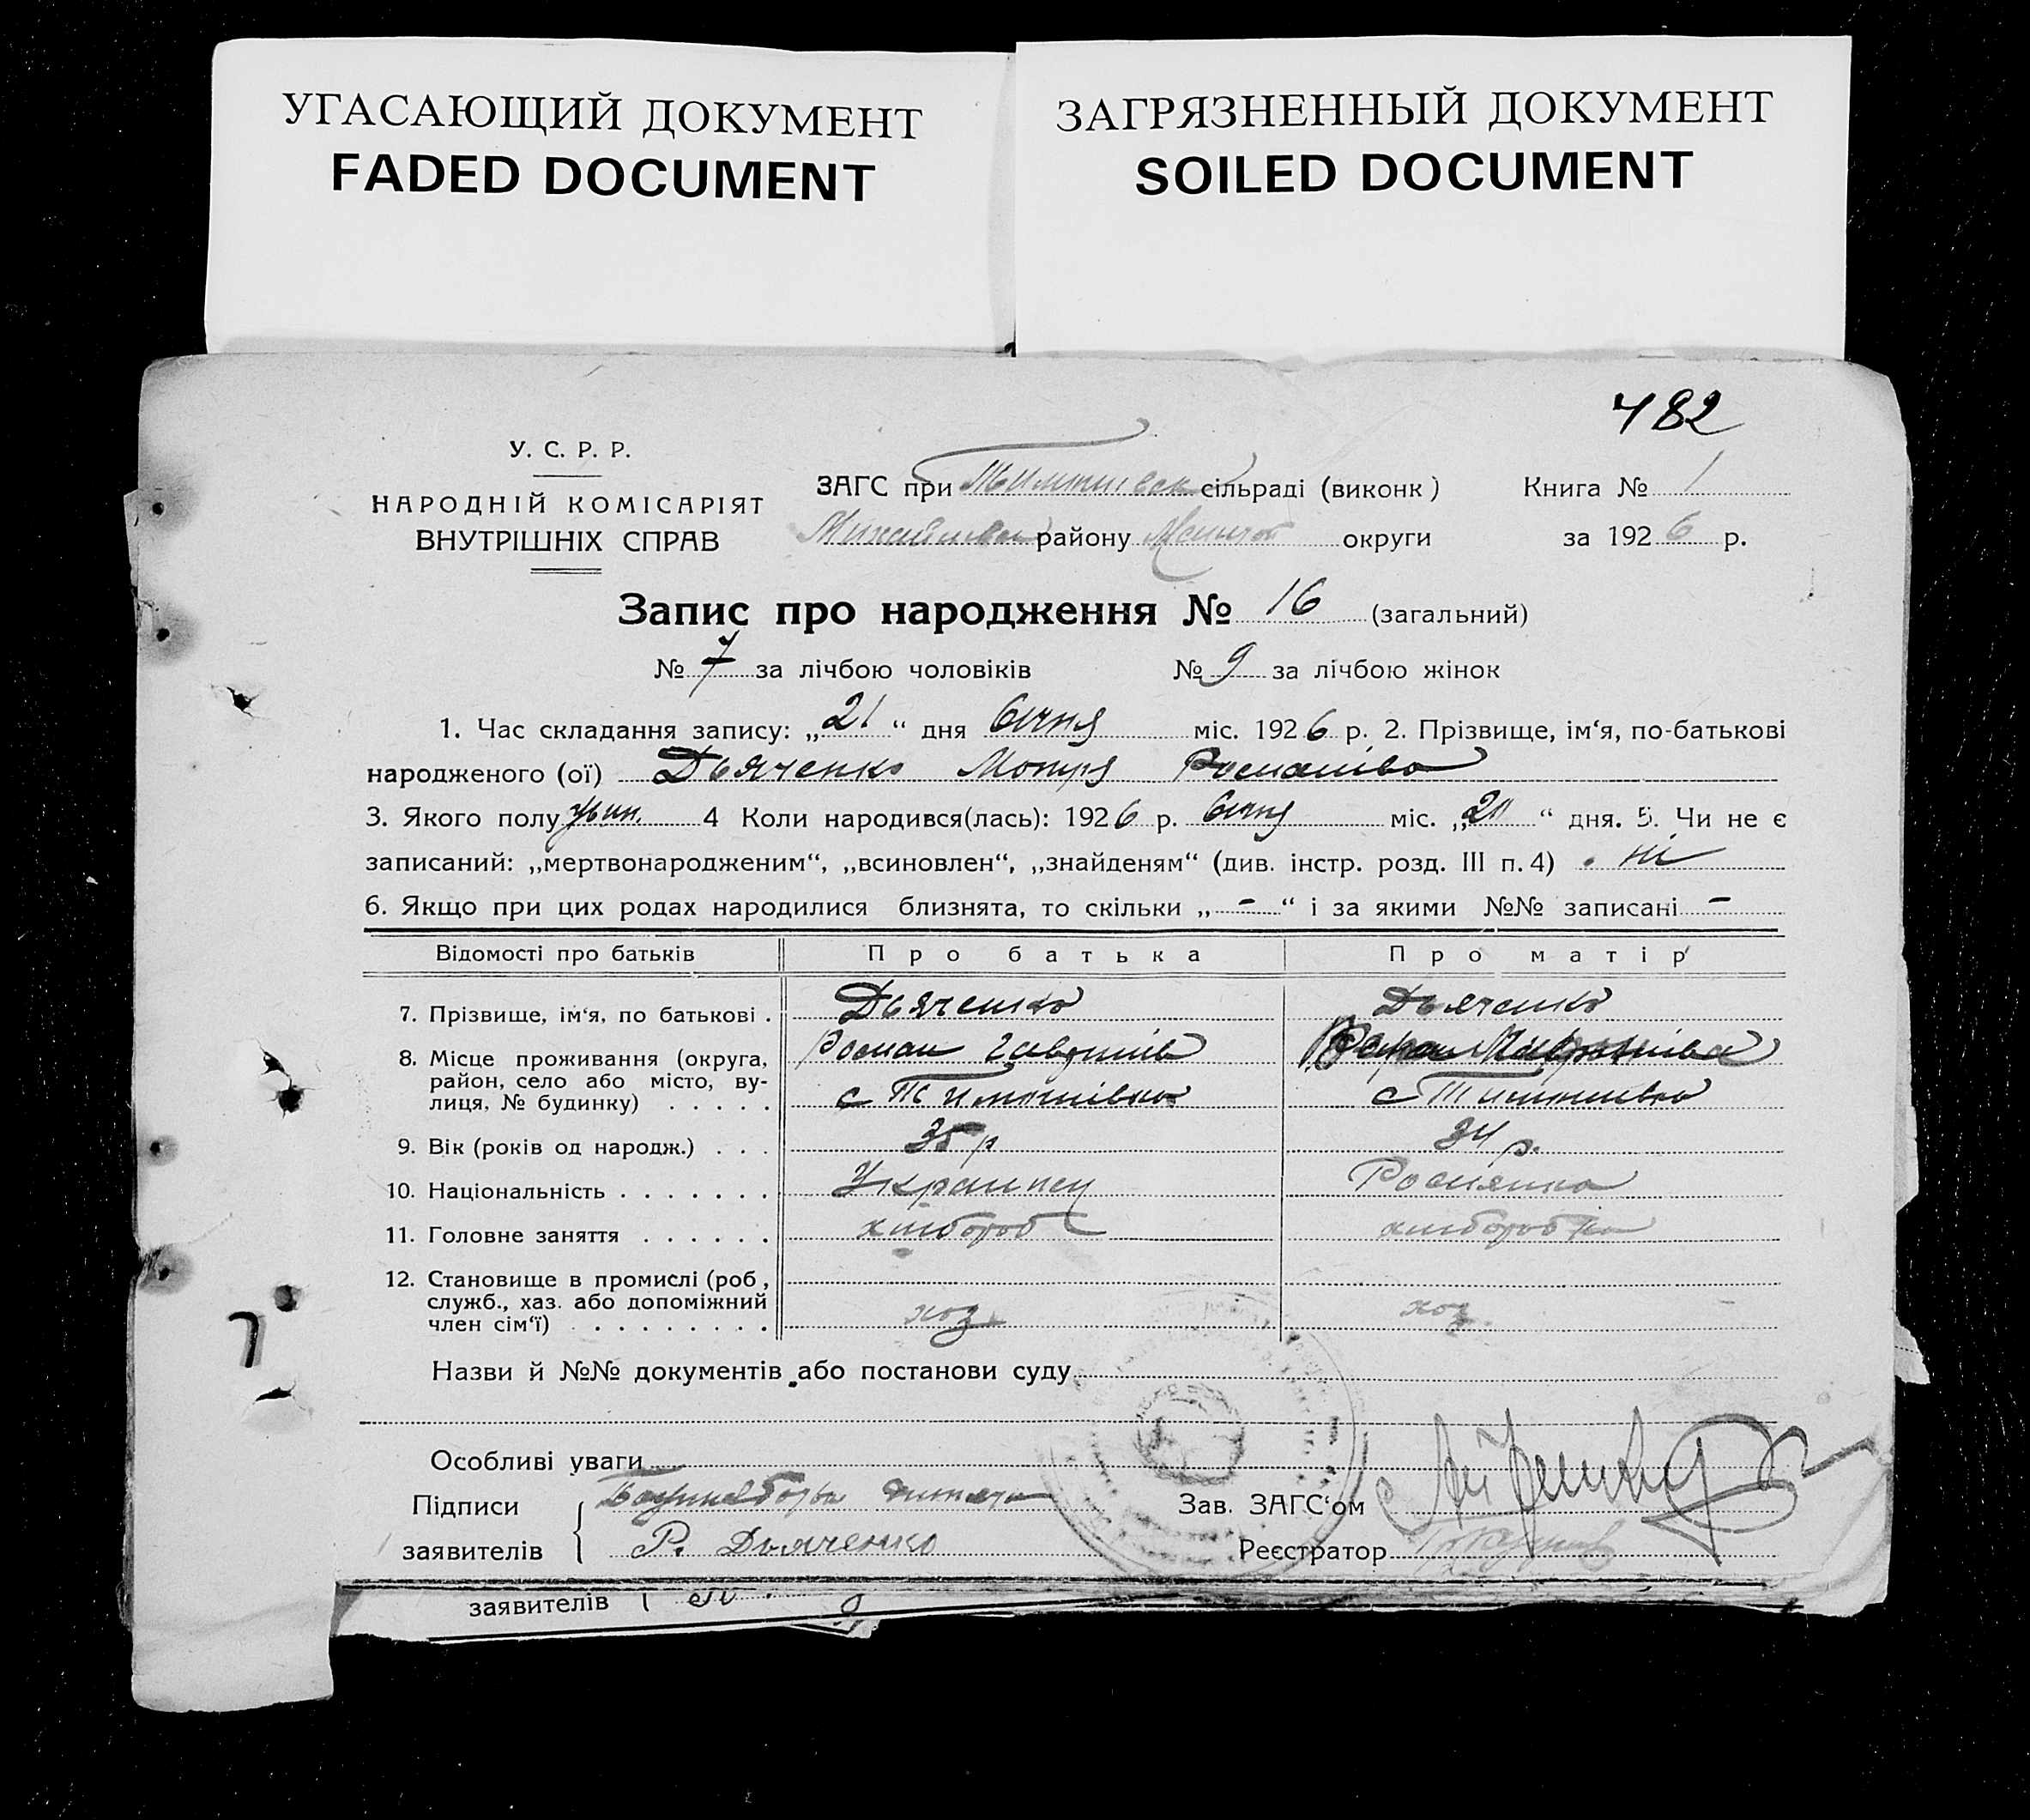 УГАСАЮЩИЙ ДОКУМЕНТ
FADED DOCUMENT
ЗАГРЯЗНЕННЫЙ ДОКУМЕНТ
SOILED DOCUMENT
482
У. С. Р. Р.
НАРОДНІЙ КОМІСАРІЯТ
ВНУТРІШНІХ СПРАВ
ЗАГС при сільраді (виконк) Книга № 1
району округи за 1926 р.
Запис про народження № 16 (загальний)
№ 7 за лічбою чоловіків № 9 за лічбою жінок
1. Час складання запису: „21“ дня січня міс. 1926 р. 2. Прізвище, ім‘я, по-батькові
народженого (ої) Дьяченко Мотря Романівна
3. Якого полу жін. 4 Коли народився(лась): 1926 р. січня міс. „ “ дня. 5. Чи не є
записаний: „мертвонародженим“, „всиновлен“, „знайденям“ (див. інстр. розд. III п. 4) ні
6. Якщо при цих родах народилися близнята, то скільки „ - “ і за якими №№ записані -
Відомості про батьків Про батька Про матір
7. Прізвище, ім‘я, по батькові . Дьяченко Дьяченко
Роман
8. Місце проживання (округа,
район, село або місто, ву-
лиця, № будинку) . . . . . с Тимошівка с Тимошівка
9. Вік (років од народж.) . . . 35 р 34 р.
10. Національність . . . . . . . Украинец Росиянка
11. Головне заняття . . . . . . хлібороб хлібороб
12. Становище в промислі (роб,
служб., хаз. або допоміжний
член сім‘ї) . . . . . . . . . хоз хоз
7
Назви й №№ документів або постанови суду
Особливі уваги
Підписи
заявителів Р. Дьяченко
Зав. ЗАГС‘ом
Реєстратор
заявителів